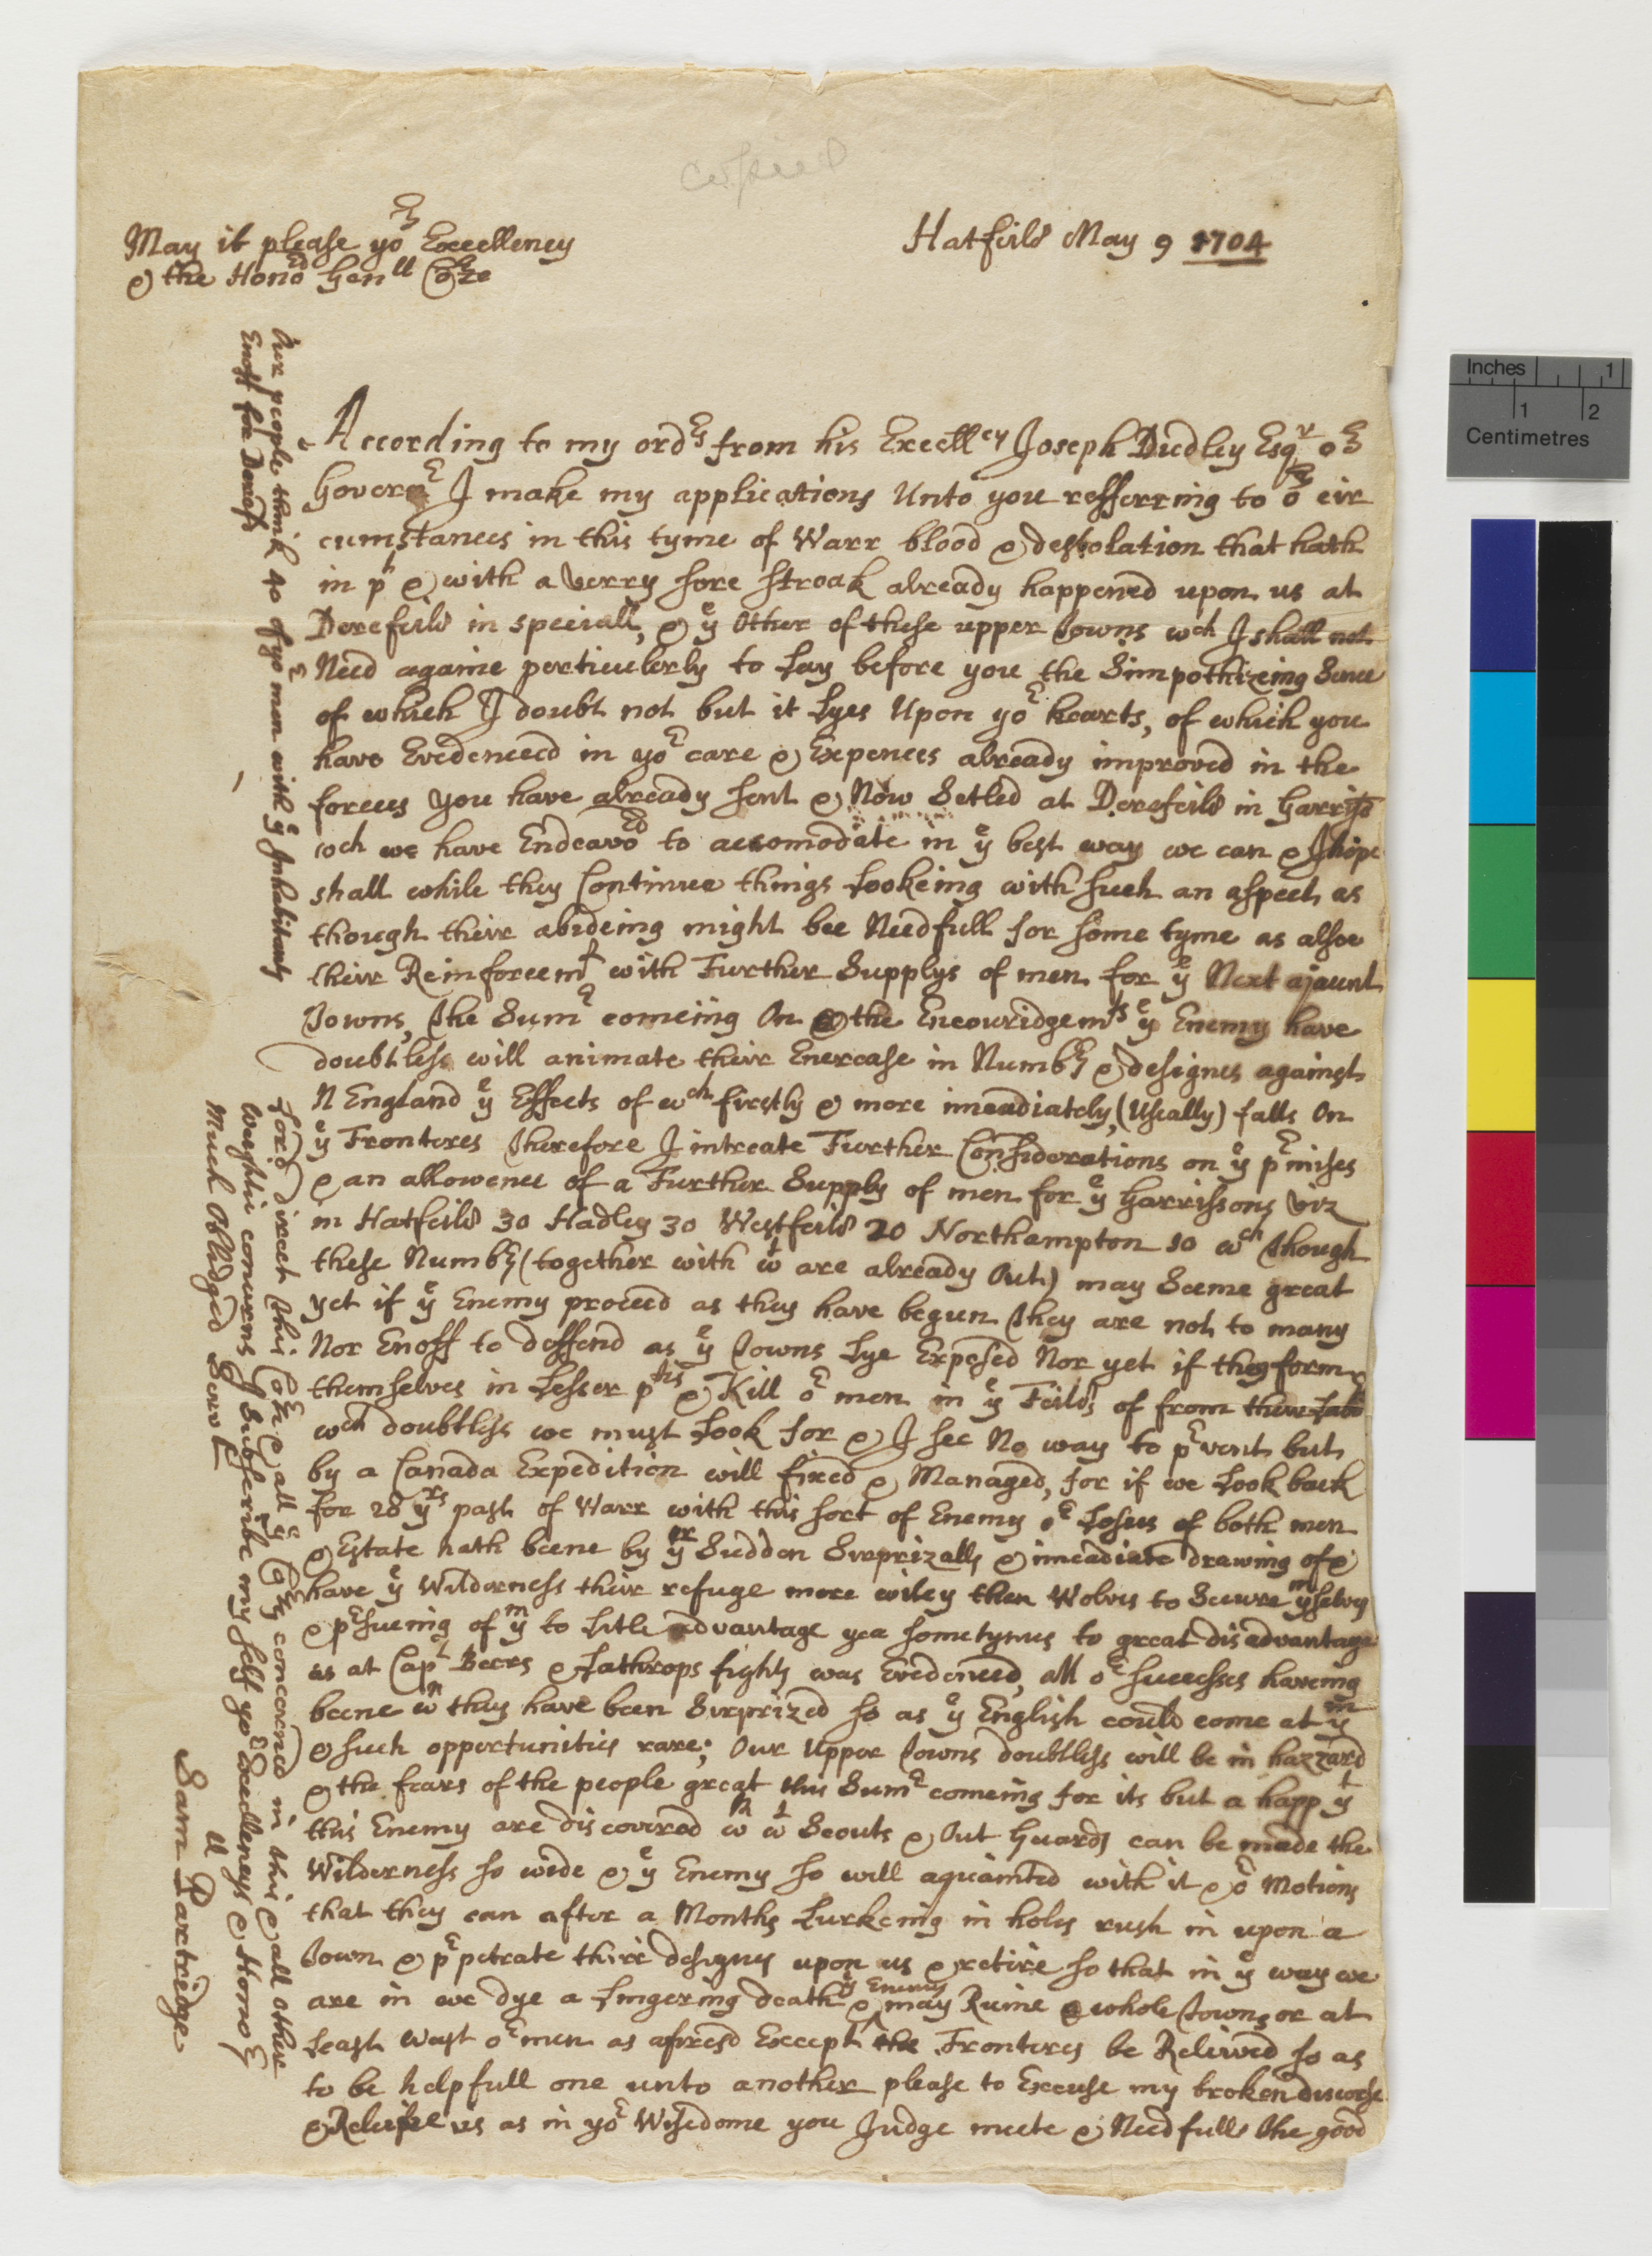 copied
May it please yor Excellency
& the Honod Genll Corte
Hatfeild May 9 1704
According to my ordrs from his Excellcy Joseph Dudley Esqr or
Governr I make my applications Unto you refferring to or cir
cumstances in this tyme of Warr blood & desolation that hath
in pt & with a verry sore stroak already happened upon us at
Derefeild in speciall, & ye Other of these upper Towns wch I shall not
Need againe perticulerly to Lay before you the Simpothizeing Sence
of which I doubt not but it Lyes Upon yor hearts, of which you
have Evedenced in yor care & Expences already improved in the
forces you have already sent & Now Setled at Derefeild in Garriso
wch we have Endeavod to accomodate in ye best way we can & I hope
shall while they Continue things Lookeing with such an aspect as
though their abideing might bee Needfull for some tyme as alsoe
their Reinforcemt with Further Supplys of men for ye Next ajaunt
Towns, The Sumr comeing On & the Encouridgemts ye Enemy have
doubtless will animate their Encrease in Numbrs & designes against
N England ye Effects of wch firstly & more imeadiately, (Usually) falls On
ye Frontires Therefore I intreate Further Considerations on ye prmises
& an allowence of a Further Supply of men for ye Garrissons viz
in Hatfeild 30 Hadley 30 Westfeild 20 Northampton 10 wch Though
these Numbrs (together with wt are already Out) may Seeme great
yet if ye Enemy proceed as they have begun They are not to many
Nor Enoff to deffend as ye Towns Lye Exposed Nor yet if they form
themselves in Lesser ptis & Kill or men in ye Feilds of from their Labo
wch doubtless we must Look for & I see No way to prvent but
by a Canada Expedition will fixed & Managed, for if we Look back
for 28 yrs past of Warr with this sort of Enemy or Losses of both men
& Estate hath beene by yr Sudden Surprizalls & imeadiate drawing of &
have ye Wilderness their refuge more wiley then Wolves to Secure ymselves
& prsueing of ym to Litle advantage yea sometymes to great disadvantage
as at Capt Beers & Lathrops fights was Evedenced, all or Successes haveing
beene wn they have been Surprized so as ye English could come at ym
& such opportunities rare; Our Upper Towns doubtless will be in hazzard
& the fears of the people great this Sumr comeing for its but a happ yt
this Enemy are discovered wn wt Scouts & Out Guards can be made the
Wilderness so wide & ye Enemy so well aquainted with it & or Motions
that they can after a Months Lurkeing in holes rush in upon a
Town & prpetrate their designes upon us & retire so that in ye way we
are in we dye a Lingering death & ye Enemy may Ruine whole Towns or at
Least Wast or men as aforesd Except the Frontires be Releived so as
to be helpfull one unto another please to Excuse my broken discorse
& Releive us as in yor Wisedome you Judge meete & Needfull The good
Lord direct this Corte & all ye Corts concerned in this & all other
Weightie concerns I Subscribe my self yor Excellencys & Honors
Much Oblidged Servt
Samll Partridge
Our people think 40 of yor men with ye Inhabitants
Enoff for Derefd